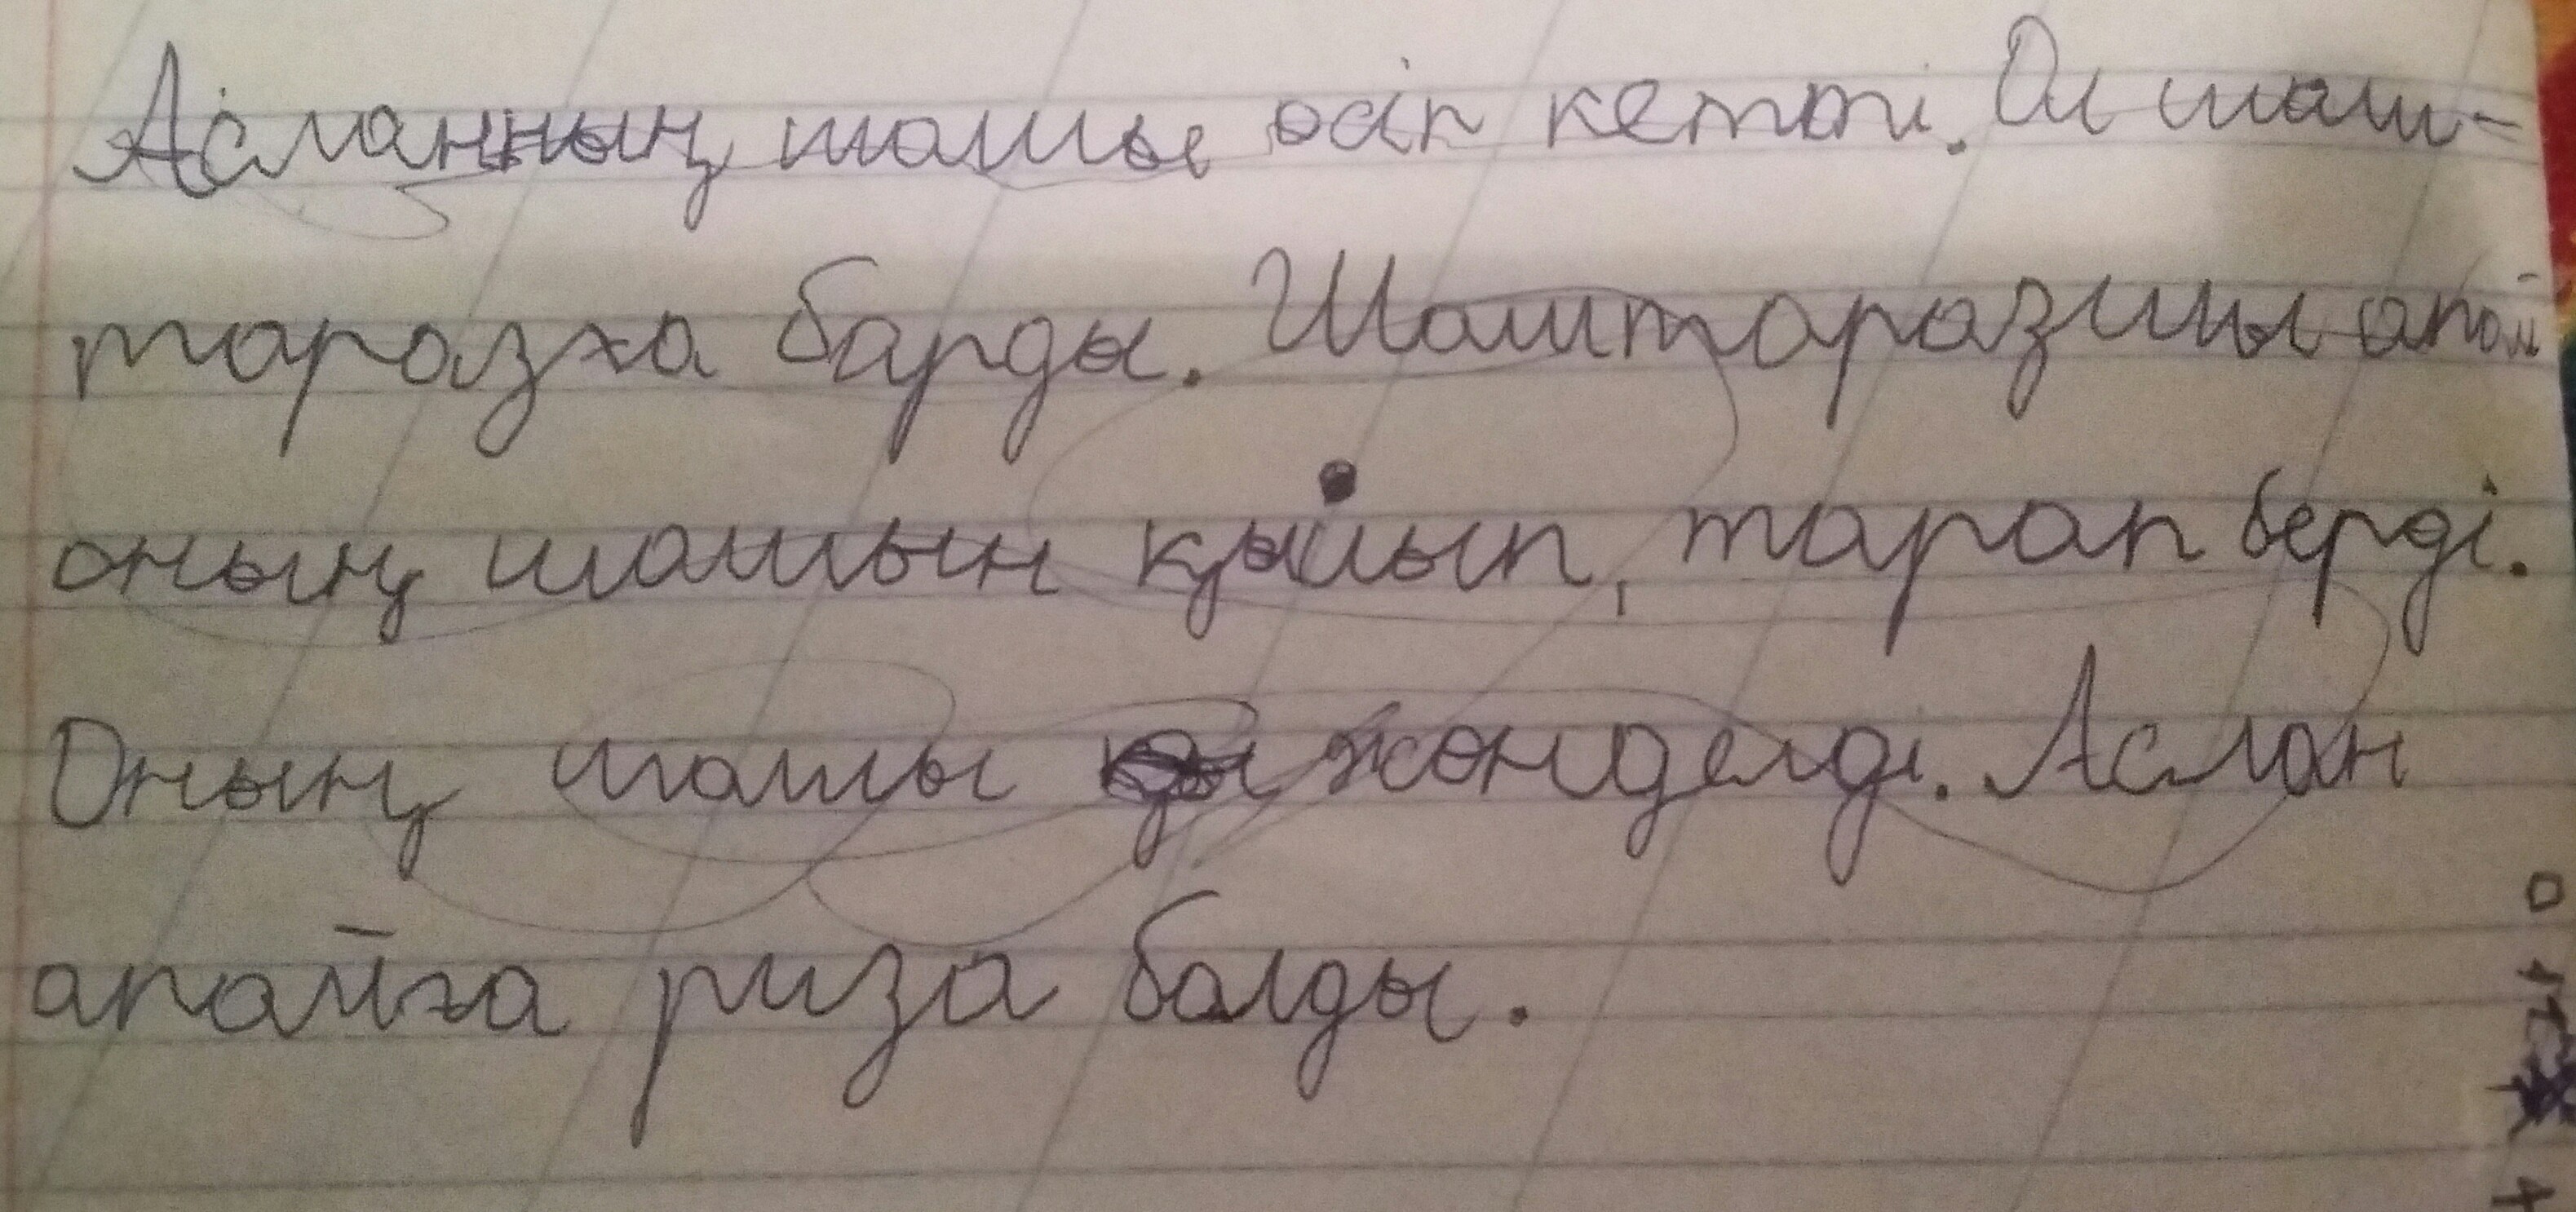 Асланның шашы өсіп кетті. Ол шаш-
таразға барды. Шаштаразшы апай
оның шашын қыйып, тарап берді.
Оның шашы жөнделді. Аслан
апайға риза балды.